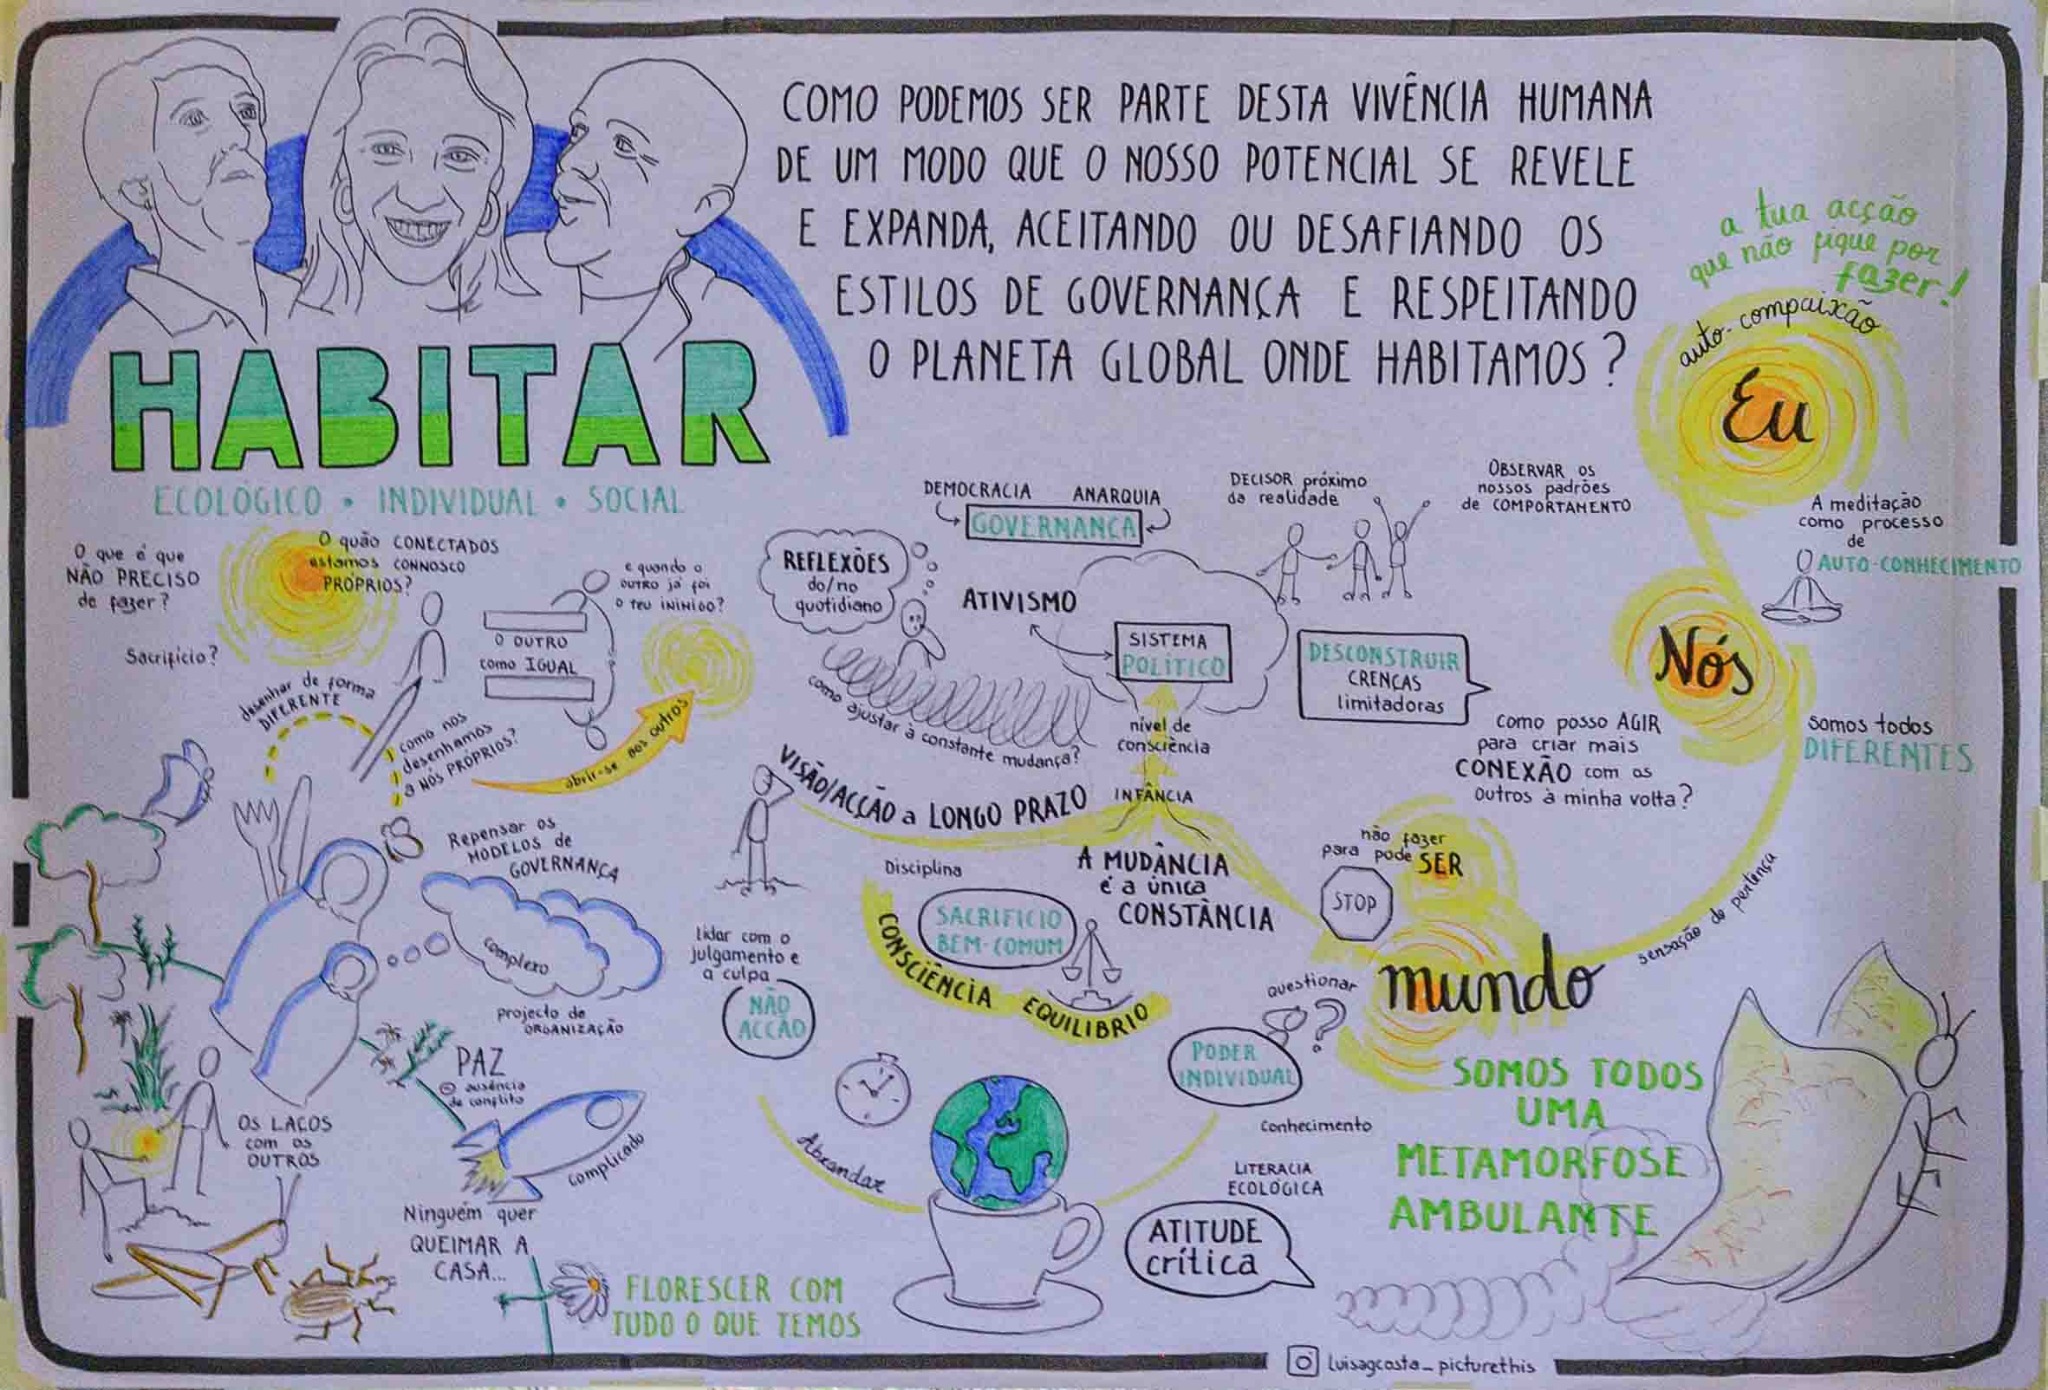 COMO PODEMOS SER PARTE DESTA VIVÊNCIA HUMANA
DE UM MODO QUE O NOSSO POTENCIAL SE REVELE
E EXPANDA, ACEITANDO OU DESAFIANDO OS
ESTILOS DE GOVERNANÇA E RESPEITANDO
O PLANETA GLOBAL ONDE HABITAMOS?
HABITAR
ECOLÓGICO • INDIVIDUAL • SOCIAL
a tua acção
que não fique por
fazer!
auto-compaixão
Eu
O que é que
NÃO PRECISO
de fazer?
Sacrifício?
O quão CONECTADOS
estamos CONNOSCO
PRÓPRIOS?
desenhar de forma
DIFERENTE
como nos
desenhamos
a NÓS PRÓPRIOS?
O OUTRO
como IGUAL
e quando o
OUTRO já foi
o teu INIMIGO?
abrir-se aos outros
Repensar os
MODELOS de
GOVERNANÇA
complexo
projecto de
ORGANIZAÇÃO
PAZ
ausência
de conflito
complicado
OS LAÇOS
com os
OUTROS
Ninguém quer
QUEIMAR A
CASA...
FLORESCER COM
TUDO O QUE TEMOS
REFLEXÕES
do/no
quotidiano
como ajustar à constante mudança?
DEMOCRACIA ANARQUIA
GOVERNANÇA
ATIVISMO
SISTEMA
POLÍTICO
nível de
consciência
INFÂNCIA
DECISOR próximo
da realidade
OBSERVAR os
nossos padrões
de COMPORTAMENTO
DESCONSTRUIR
CRENÇAS
limitadoras
VISÃO/ACÇÃO a LONGO PRAZO
Disciplina
SACRIFICIO
BEM-COMUM
CONSCIÊNCIA EQUILIBRIO
A MUDÂNCIA
é a única
CONSTÂNCIA
lidar com o
julgamento e
a culpa
NÃO
ACÇÃO
Abrandar
A meditação
como processo
de
AUTO-CONHECIMENTO
Nós
somos todos
DIFERENTES
como posso AGIR
para criar mais
CONEXÃO com os
outros à minha volta?
não fazer
para pode SER
STOP
sensação de pertença
mundo
questionar
?
PODER
INDIVIDUAL
Conhecimento
LITERACIA
ECOLÓGICA
ATITUDE
crítica
SOMOS TODOS
UMA
METAMORFOSE
AMBULANTE
luisagcosta_picturethis